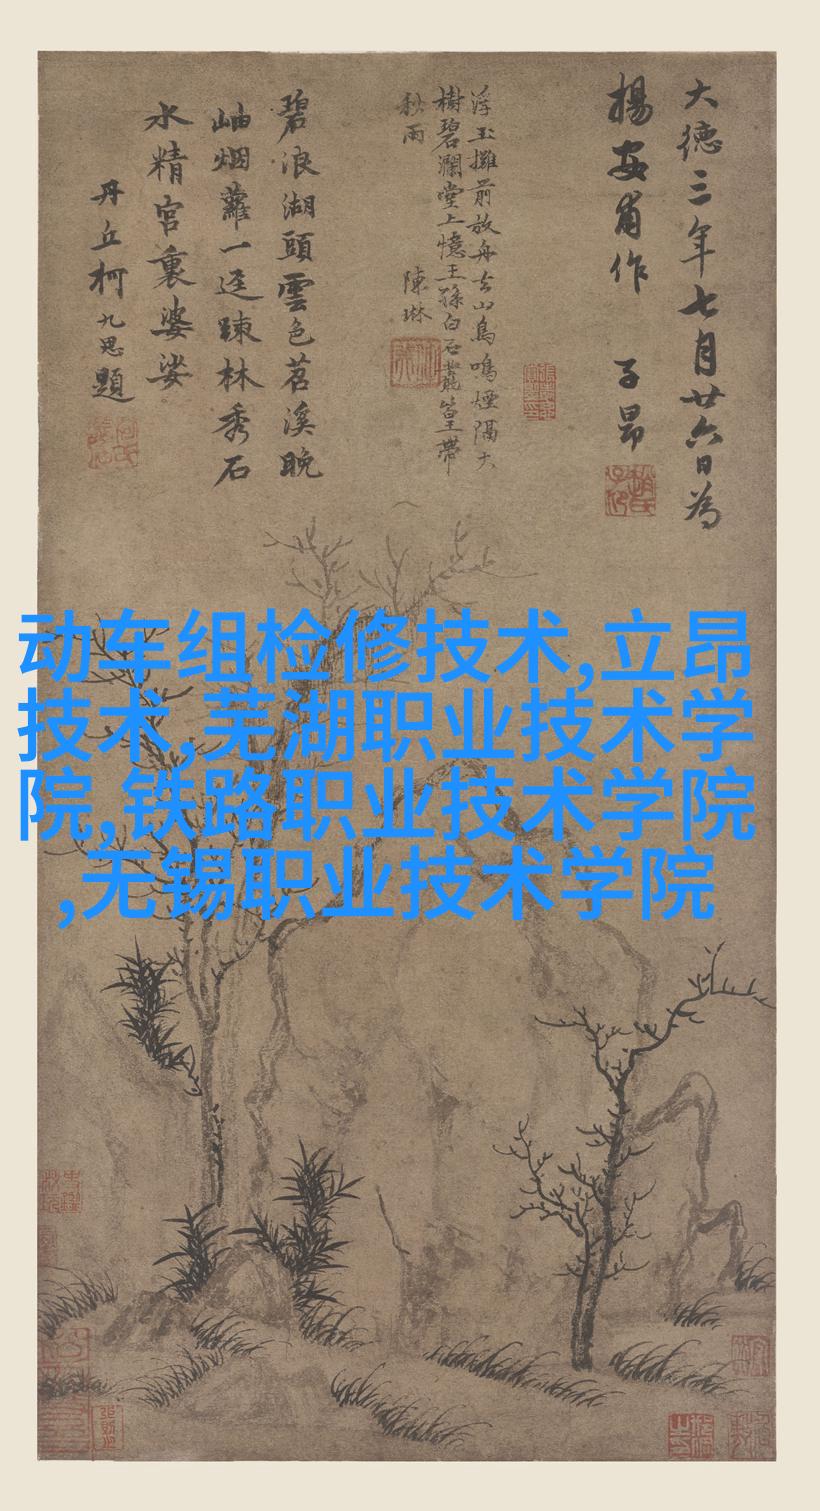 大德三年七月廿六日為
楊安甫作 子昂
浮玉攤前放舟去山鳥鳴煙隔大
樹碧瀾堂上憶王孫白石叢篁帶
秋雨 陳琳
碧浪湖頭雲色苕溪晚
岫烟蘿一逕踈林秀石
水精宮裏婆娑
丹丘柯九思題
动车组检修技术,立昂
技术,芜湖职业技术学
院,铁路职业技术学院
,无锡职业技术学院